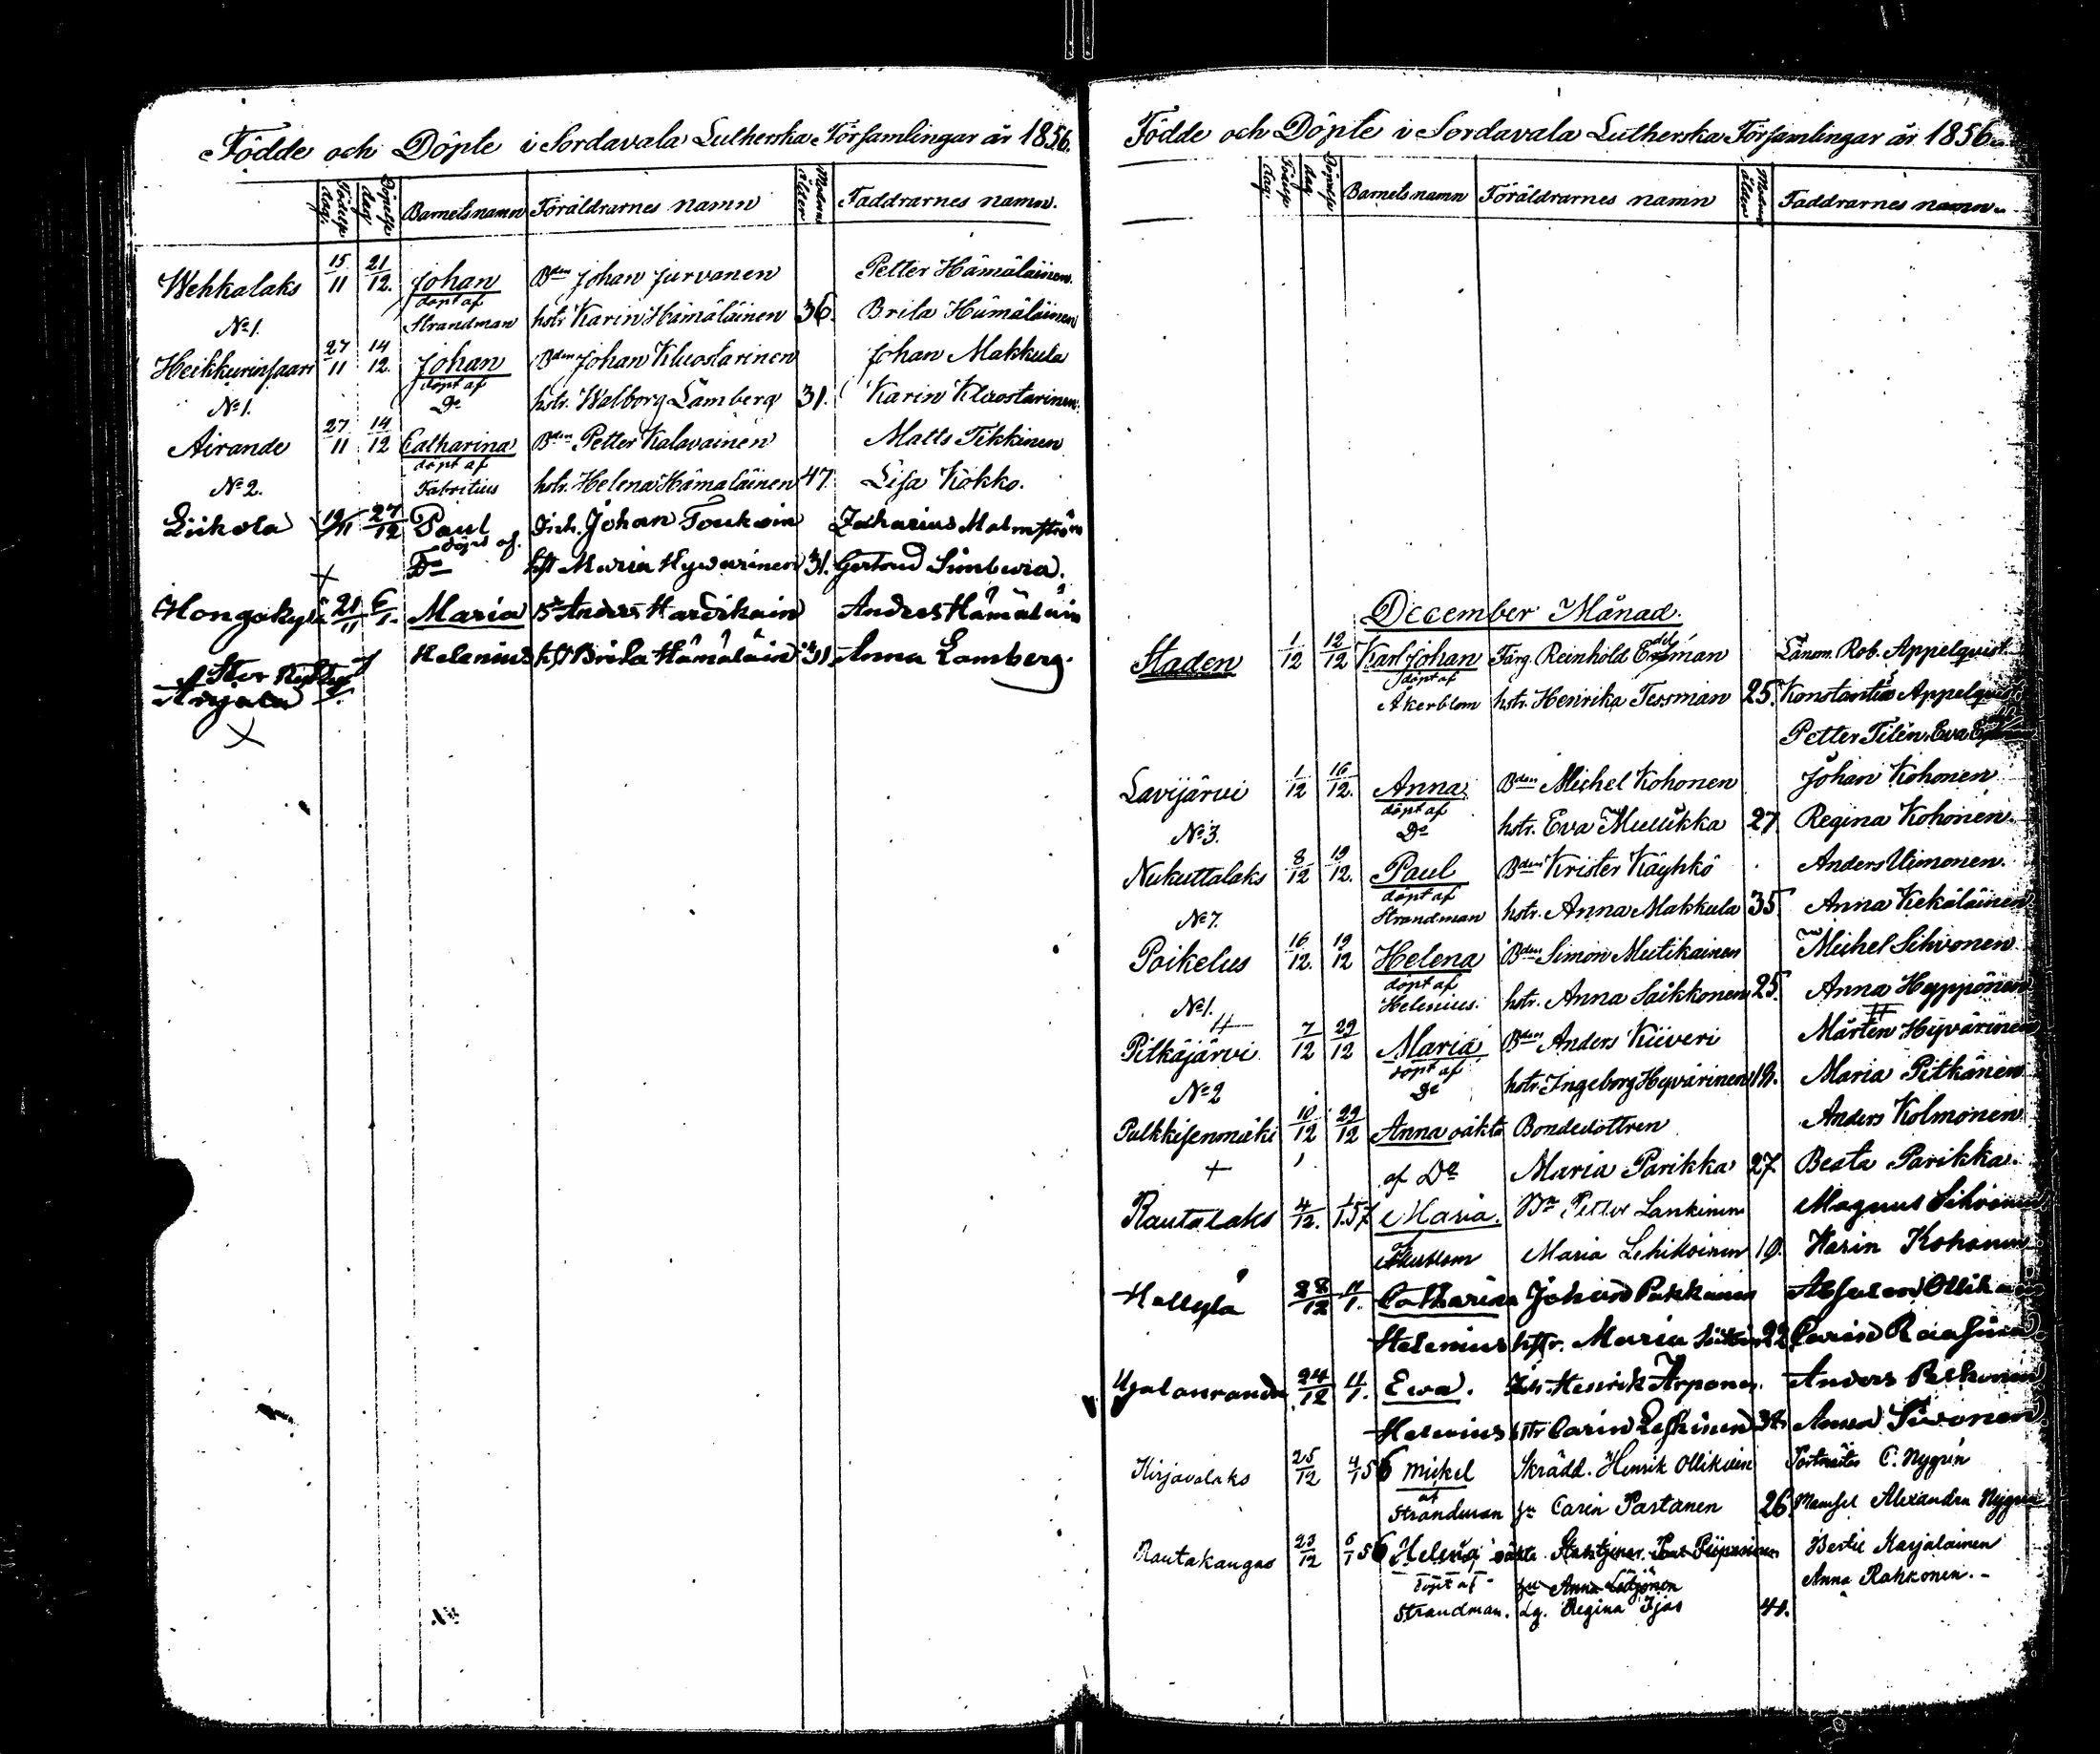 Födde och Döpte i Sordavala Lutherska Församlingar år 1856.
Födelse dag. Döpelse dag Barnets namn Föräldrarnes namn Modrens ålder Faddrarnes namn.
Wehkalaks 15/11 21/12. Johan Bden Johan Jurvanen Petter Hämäläinen.
No 1. döpt af Strandman hstr Karin Hämäläinen 36. Brita Hämäläinen
Heikkurinsaari 27/11 14/12. Johan Bden Johan Kluostarinen Johan Makkula
No 1. döpt af Do hstr. Walborg Lamberg 31. Karin Kluostarinen.
Airande 27/11 14/12 Catharina Bden Petter Kalavainen Matts Tikkinen
No 2. döpt af Fabritius hstr. Helena Hämäläinen 47. Lisa Kokko.
Liikola 19/11 27/12 Paul Inh. Johan Toukoin Zacharius Malmström
döpt af. Do hst Maria Hyvarinen 31. Gertrud Simbura.
Hongakylä 21/11 6/1. Maria Bd Anders Hardikain Anders Hämäläin
Helenius hst Brita Hämäläin 31 Anna Lamberg.
Anjala
Födde och Döpte i Sordavala Lutherska Församlingar år 1856.
Födelse dag. Döpelse dag. Barnets namn Föräldrarnes namn Modrens ålder Faddrarnes namn.
December Månad.
Staden 1/12 12/12 Karl Johan Färg. Reinhold Länsm. Rob. Appelqvist.
döpt af Åkerblom hstr. Henrika Tessman 25. Konstantia Appelqvist
Petter Tilén, Eva
Lavijärvi 1/12 16/12. Anna Bden Michel Kohonen Johan Kohonen
No 3. döpt af Do hstr. Eva Mulükka 27 Regina Kohonen.
Nukuttalaks 8/12 19/12. Paul Bden Krister Käyhkö Anders Uimonen.
No 7. döpt af Strandman hstr. Anna Makkula 35. Anna Kekäläinen
Poikelus 16/12. 19/12 Helena Bden Simon Mutikainen Michel Sihvonen
No 1. döpt af Helenius. hstr. Anna Saikkonen 25. Anna Hyppönen
Pitkäjärvi 7/12 29/12 Maria Bden Anders Kiiveri Mårten Hyvärinen
No 2 döpt af Do hstr. Ingeborg Hyvärinen 19. Maria Pitkänen
Pulkkisenmäki 10/12 29/12 Anna oäkta Bondedottren Anders Kolmonen
af Do Maria Parikka 27 Beata Parikka.
Rautalaks 4/12. 1/1.57 Maria. Bn Petter Lankinen Magnus Sihvonen
af Åkerblom Maria Lehikoinen 19. Karin Kohonen
Hallylä 28/12 11/1. Catharina Johan Pukkinen Absalon Ollikain
Helenius hstr. Maria 22 Carin
24/12 11/1. Ewa. Inh. Henrik Arponen. Anders
Helenius hstr Carin Leskinen 34. Anna Siwonen
Kirjavalaks 25/12 4/1 56 Mickel Skrädd. Henrik Ollikain C. Nygrén
af Strandman hu Carin Partanen 26. Mamsel Alexandra Nygrén
Rautakangas 23/12 6/1 56 Helena oäkta Bertil Karjalainen
döpt af Anna Rahkonen.
Strandman. Lg. Regina Ijas 41.